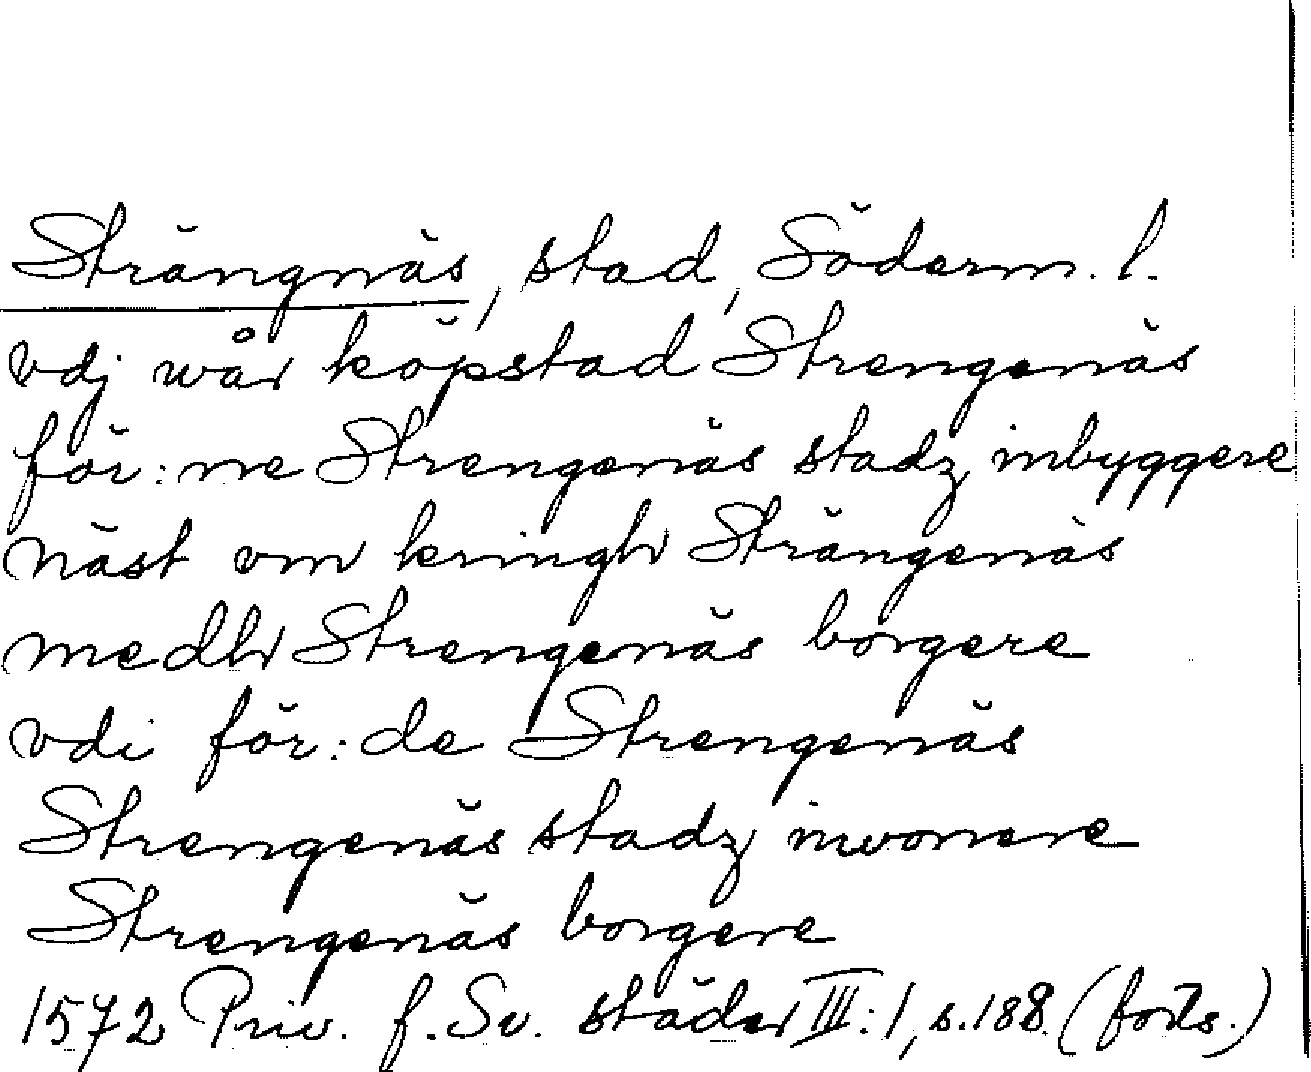 Strängnäs, stad, Söderm. l.
vdj wår köpstad Strengenäs
för:ne Strengenäs stadz inbyggere
näst om kringh Strängenäs
medh Strengenäs borgere
vdi för:de Strengenäs
Strengenäs stadz inwonere
Strengenäs borgere
1572 Priv. f. Sv. städer III:1, s.188 (forts.)